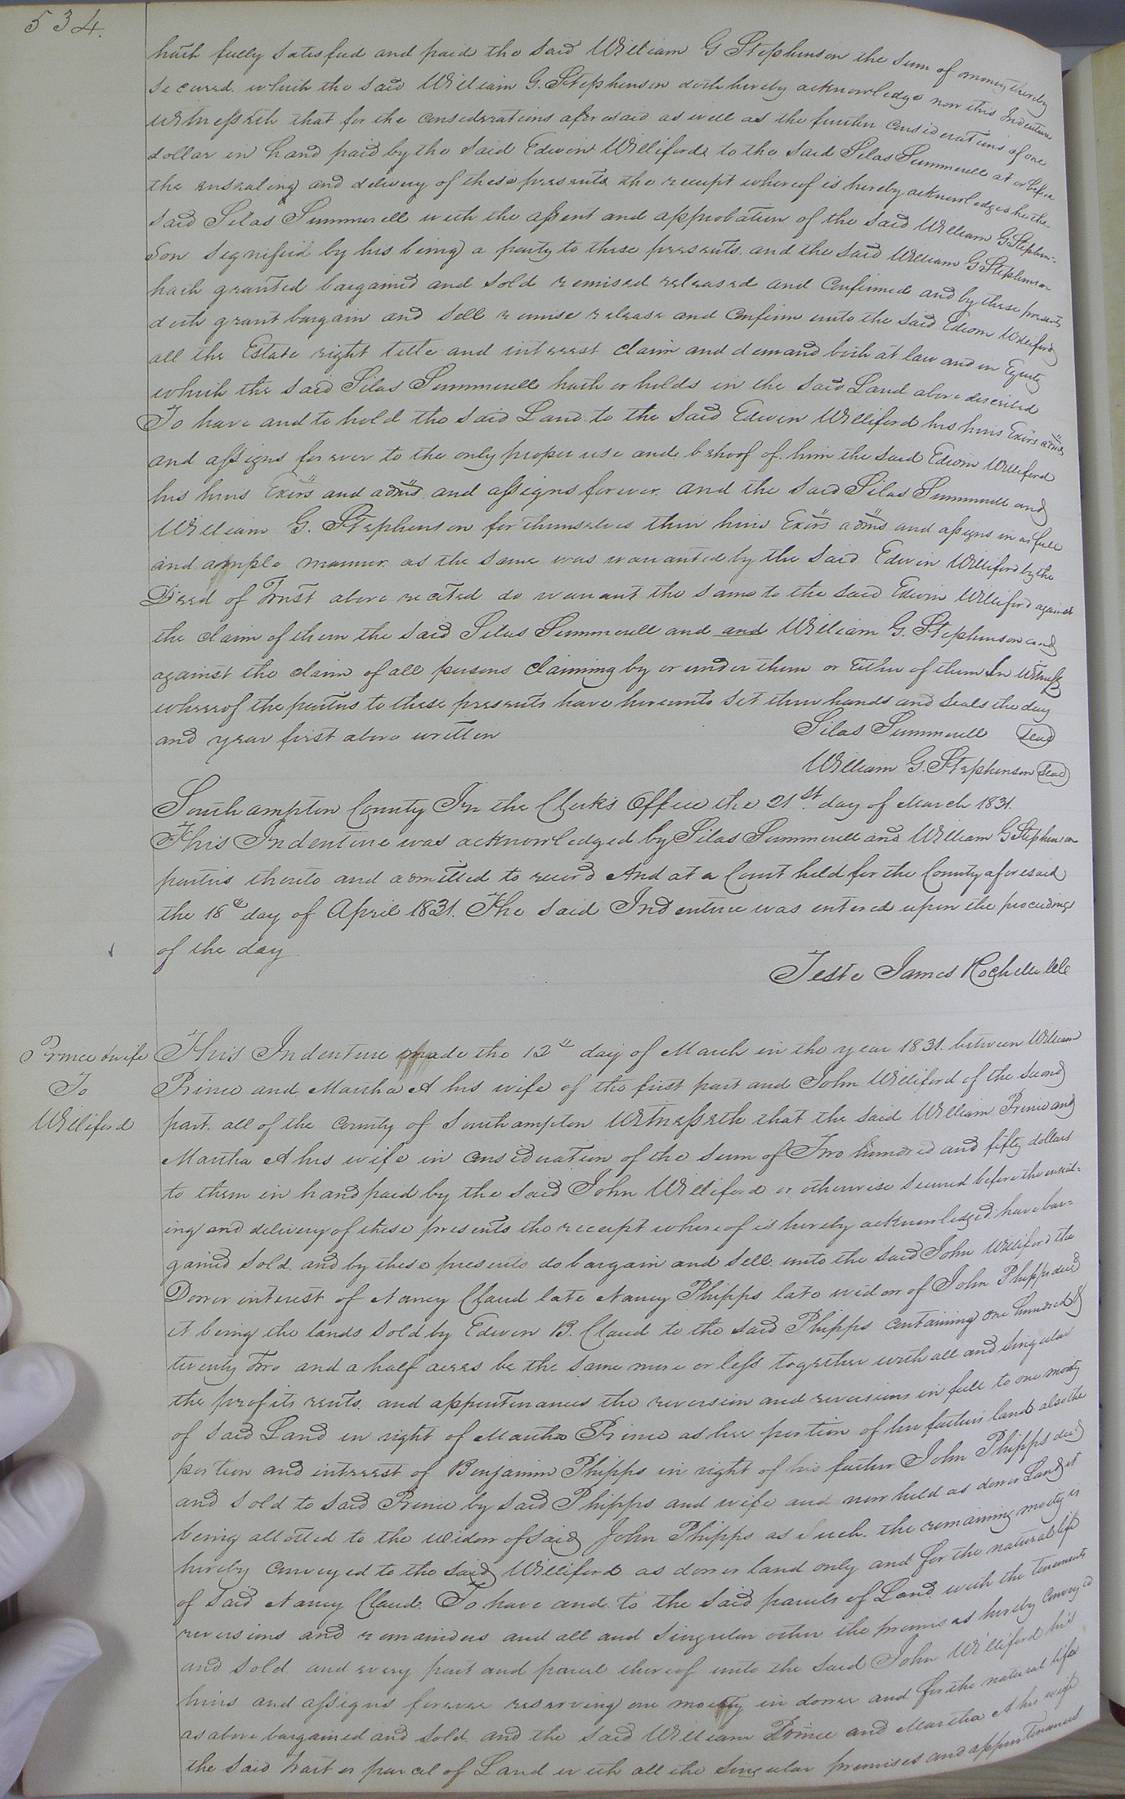 534.
hath fully satisfied and paid the said William G Stephenson the sum of money thereby
secured which the said William G. Stephenson doth hereby acknowledge now this Indenture
witnesseth that for the considerations aforesaid as well as the further considerations of one
dollar in hand paid by the said Edwin Williford to the said Silas Summerell at or before
the ensealing and delivery of these presents the receipt whereof is hereby acknowledged he the
said Silas Summerell with the assent and approbation of the said William G. Stephen-
son signified by his being a party to these presents and the said William G. Stephenson
hath granted bargained and sold remised released and confirmed and by these presents
doth grant bargain and sell remise release and confirm unto the said Edwin Williford
all the Estate right title and interest claim and demand both at law and in Equity
which the said Silas Summerell hath or holds in the said Land above described
To have and to hold the said Land to the said Edwin Williford his heirs Exors adms
and assigns forever to the only proper use and behoof of him the said Edwin Williford
his heirs Exors and adms and assigns forever and the said Silas Summerell and
William G. Stephenson for themselves their heirs Exors adms and assigns in as full
and ample manner as the same was warranted by the said Edwin Williford by the
Deed of Trust above recited do warrant the same to the said Edwin Williford against
the claim of them the said Silas Summerell and and William G. Stephenson and
against the claim of all persons claiming by or under them or Either of them In Witness
whereof the parties to these presents have hereunto set their hands and seals the day
and year first above written Silas Summerell Seal
William G. Stephenson Seal
Southampton County In the Clerk's Office the 21st day of March 1831.
This Indenture was acknowledged by Silas Summerell and William G Stephenson
parties thereto and admitted to record And at a Court held for the County aforesaid
the 18th day of April 1831. The said Indenture was entered upon the proceedings
of the day
Teste James Rochelle
Prince & wife
To
Williford
This Indenture made the 12th day of March in the year 1831. between William
Prince and Martha A his wife of the first part and John Williford of the second
part. all of the County of Southampton Witnesseth that the said William Prince and
Martha A his wife in consideration of the sum of Two hundred and fifty dollars
to them in hand paid by the said John Williford or otherwise secured before the enseal-
ing and delivery of these presents the receipt whereof is hereby acknowledged have bar-
gained sold and by these presents do bargain and sell unto the said John Williford the
Dower interest of Nancy Claud late Nancy Phipps late widow of John Phipps decd
it being the lands sold by Edwin B. Claud to the said Phipps containing one hundred &
twenty two and a half acres be the same more or less together with all and singular
the profits rents. and appurtenances the reversion and reversions in full to one moiety
of said Land in right of Martha Prince as her portion of her fathers land also the
portion and interest of Benjamin Phipps in right of his father John Phipps decd
and sold to said Prince by said Phipps and wife and now held as dower Land it
being allotted to the widow of said John Phipps as such. the remaining moiety is
hereby conveyed to the said Williford as dower land only and for the natural life
of said Nancy Claud. To have and to the said parcels of Land with the tenements
reversions and remainders and all and singular other the premises hereby conveyed
and sold and every part and parcel thereof unto the said John Williford his
heirs and assigns forever reserving one moiety in dower and for the natural life
as above bargained and sold and the said William Prince and Martha A his wife
the said tract or parcel of Land with all the singular premises and appurtenances